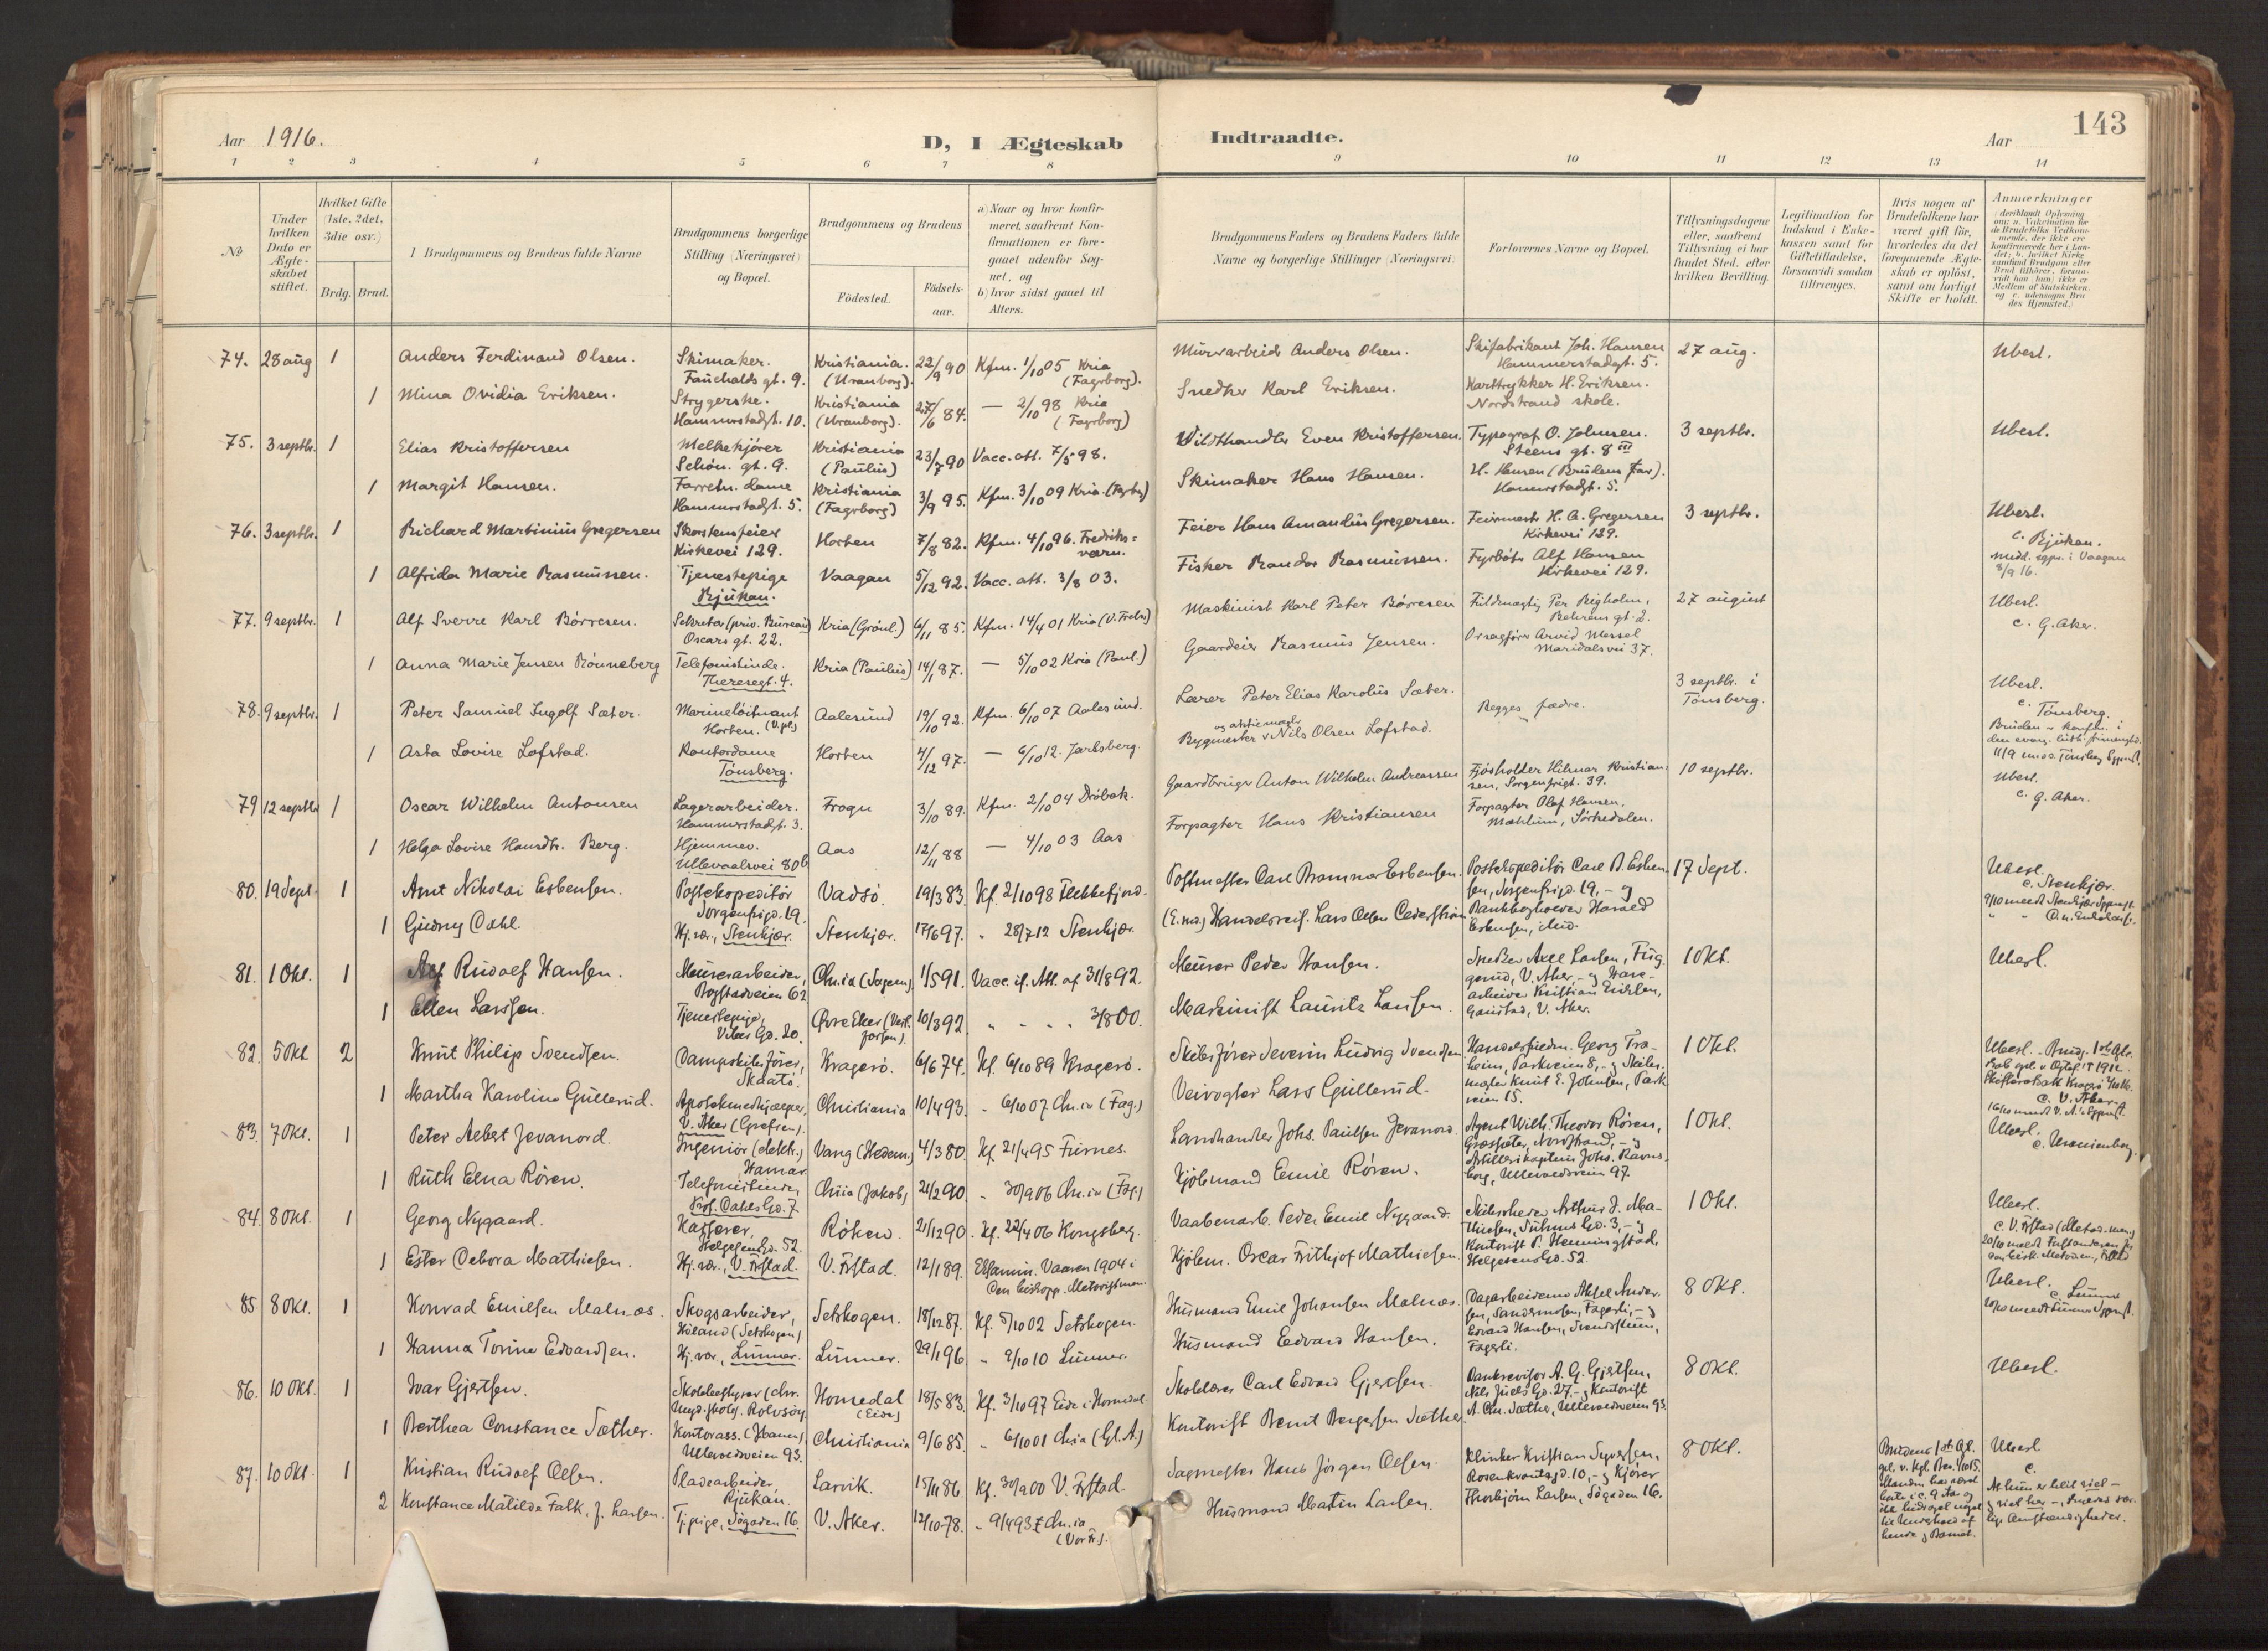 Aar 1916.
D, I Ægteskab
Indtraadte.
Aar
143
1 2 3 4 5 6 7 8 9 10 11 12 13 14
№
Under hvilken Dato er Ægteskabet stiftet.
Hvilket Gifte (1ste, 2det, 3die osv.)
Brdg. Brud.
Brudgommens og Brudens fulde Navne
Brudgommens borgerlige Stilling (Næringsvei) og Bopæl.
Brudgommens og Brudens
Födested.
Födsels-aar.
a) Naar og hvor konfirmeret, saafremt Konfirmationen er foregaaet udenfor Sognet, og
b) hvor sidst gaaet til Alters.
Brudgommens Faders og Brudens Faders fulde Navne og borgerlige Stillinger (Næringsvei).
Forlovernes Navne og Bopæl.
Tillysningsdagene eller, saafremt Tillysning ei har fundet Sted, efter hvilken Bevilling.
Legitimation for Indskud i Enkekassen samt for Giftetilladelse, forsaavidt saadan tiltrænges.
Hvis nogen af Brudefolkene har været gift för, hvorledes da det foregaaende Ægteskab er oplöst, samt om lovligt Skifte er holdt.
Anmærkninger
74. 28 aug 1 Anders Ferdinand Olsen. Skimaker. Fauchalds gt. 9. Kristiania. (Uranborg). 22/9 90 Kfm. 1/10 05 Kria (Fagrborg). Murarbeid Anders Olsen. Skifabrikant Joh. Hansen Hammerstadgt. 5. 27 aug. Ubesl.
1 Mina Ovidia Eriksen. Strygerske. Hammerstadgt. 10. Kristiania (Uranborg). 27/6 84. — 2/10 98 Kria (Fagrborg) Snedker Karl Eriksen. Karttrykker H. Eriksen. Nordstrand skole.
75. 3 septbr. 1 Elias Kristoffersen Melkekjører Schøn. gt. 9. Kristiania (Paulus) 23/7 90 Vacc. att. 7/5 98. Vildthandler Even Kristoffersen. Typograf O. Johnsen. Steens gt. 8 III 3 septbr. Ubesl.
1 Margit Hansen. Forretn. dame Hammerstadgt. 5. Kristiania (Fagrborg) 3/9 95. Kfm. 3/10 09 Kria. (Fagrbg) Skimaker Hans Hansen. H. Hansen (Brudens far). Hammerstadgt. 5.
76. 3 septbr. 1 Richard Martinius Gregersen Skorstensfeier Kirkevei 129. Horten 7/8 82. Kfm. 4/10 96. Fredriksværn. Feier Hans Amandus Gregersen. Feiermest. H. A. Gregersen Kirkevei 129. 3 septbr. Ubesl. c. Rjukan.
1 Alfrida Marie Rasmussen. Tjenestepige Rjukan. Vaagan 5/12 92. Vacc. att. 3/8 03. Fisker Randor Rasmussen. Fyrbøter Alf Hansen Kirkevei 129. medd. sgpr. i Vaagan 8/9 16.
77. 9 septbr. 1 Alf Sverre Karl Børresen. Sekretær (priv. Bureau) Oscars gt. 22. Kria (Grönl.) 6/11 85. Kfm. 14/4 01 Kria (V. Frels) Maskinist Karl Peter Børresen Fuldmægtig Per Righolm, Behrens gt. 2. 27 august Ubesl. c. G. Aker.
1 Anna Marie Jensen Rønneberg Telefonistinde. Theresegt. 4. Kria (Paulus) 14/1 87. — 5/10 02 Kria (Paul.) Gaardeier Rasmus Jensen. Orsagfører Arvid Messel Maridalsvei 37.
78. 9 septbr. 1 Peter Samuel Ingolf Sæter. Marineløitnant Horten. Aalesund 19/10 92. Kfm. 6/10 07 Aalesund. Lærer Peter Elias Karolus Sæter. Begges fædre. 3 septbr. i Tønsberg. Ubesl. c. Tønsberg.
1 Asta Lovise Lofstad. Kontordame Tønsberg. Horten 4/12 97. — 6/10 12. Jarlsberg. Bygmester og aktiemægler Nils Olsen Lofstad. Bruden konfm. i den evang. luth. frimenighed.
79 12 septbr 1 Oscar Wilhelm Antonsen Lagerarbeider. Hammerstadgt. 3. Frogn 3/10 89. Kfm. 2/10 04 Drøbak. Gaardbruger Anton Wilhelm Andreassen Fjøsholder Hilmar Kristiansen, Sorgenfrigt. 39. 10 septbr. Ubesl. c. G. Aker.
1 Helga Lovise Hansdtr. Berg. Hjemmev. Ullevaalsvei 80b Aas 12/11 88 — 4/10 03 Aas Forpagter Hans Kristiansen Forpagter Olaf Hansen, Mæhlum, Sørkedalen.
80. 19 Sept. 1 Arnt Nikolai Esbensen. Postekspeditør Sorgenfrigd. 19. Vadsö. 19/3 83. Kf. 2/10 98 Flekkefjord. Postmester Carl Brammer Esbensen. Postekspeditör Carl B. Esbensen, Sorgenfrigd. 19, – og 17 Sept. Ubesl. c. Stenkjær.
1 Gudny Dahl. Hj. vær., Stenkjær. Stenkjær. 17/6 97. " 28/7 12 Stenkjær. (E. ms.) Handelsreis. Lars Olsen Cederström Bankbogholder Harald Esbensen, ibid.
81. 1 Okt. 1 Alf Rudolf Hansen. Murerarbeider, Bogstadveien 62 Chr.ia (Sagene) 1/5 91. Vacc. if. Att. af 31/8 92. Murer Peder Hansen. Snedker Axel Larsen, Fuggerud, V. Aker, – og Have- 1 Okt. Ubesl.
1 Ellen Larsen. Tjenestepige, Vibes Gd. 20. Øvre Eker (Vestfossen). 10/3 92 " " " " 3/8 00. Maskinist Lauritz Larsen. arbeider Kristian Eriksen, Gaustad, V. Aker.
82. 5 Okt. 2 Knut Philip Svendsen. Dampskibsfører, Skaatö. Kragerö. 6/6 74. Kf. 6/10 89 Kragerö. Skibsförer Severin Ludvig Svendsen Handelsfuldm. Georg Traheim, Parkveien 8, – og Skibs- 1 Okt.
1 Martha Karoline Gullerud. Apothekmedhjælper, V. Aker (Grefsen). Christiania 10/4 93. " 6/10 07 Chr.ia (Fag.) Veivogter Lars Gullerud. mægler Knut E. Johnsen, Parkveien 15. c. V. Aker.
83. 7 Okt. 1 Peter Albert Jevanord. Ingeniör (elektr.) Hamar Vang (Hedem.) 4/3 80. Kf. 21/4 95 Furnes. Landhandler Johs. Paulsen Jevanord. Agent Wilh. Theodor Rören, Nordstrand, – og 1 Okt. Ubesl. c. Uranienborg.
1 Ruth Elna Rören. Telefonistinde, Prof. Dahls Gd. 7 Chria (Jakob) 21/2 90. " 30/9 06 Chr.ia (Fag.) Kjöbmand Emil Rören. Artillerikaptein Johs. Ravnsborg, Ullevoldsveien 97.
84. 8 Okt. 1 Georg Nygaard. Kasserer, Helgesens Gd. 52. Röken. 21/12 90. Kf. 22/4 06 Kongsberg. Vaabenarb. Peder Emil Nygaard. Skibsreder Arthur J. Mathiesen, Suhms Gd. 3, – og 1 Okt. Ubesl.
1 Ester Debora Mathiesen. Hj. vær., V. Frstad. V. Frstad. 12/1 89. Examin. Vaaren 1904 i Den biskopp. Metodistmen. Kjöbm. Oscar Frithjof Mathiesen. Kontorist P. Henningstad, Helgesens Gd. 52.
85 8 Okt. 1 Konrad Emilsen Malnæs. Skogsarbeider, Höland (Setskogen) Setskogen. 18/12 87. Kf. 5/10 02 Setskogen. Husmand Emil Johansen Malnæs. Dagarbeiderne Aksel Andersen, Sandermosen, Fagerli, – og 8 Okt. Ubesl. c. Lunner
1 Hanna Torine Edvardsen. Hj. vær., Lunner. Lunner. 29/1 96. " 9/10 10 Lunner. Husmand Edvard Hansen. Edvard Hansen, Svendstuen, Fagerli.
86. 10 Okt. 1 Ivar Gjertsen. Homedal (Eide) 18/5 83. Kf. 3/10 97 Eide i Homedal. Skolelærer Carl Edvard Gjertsen. Bankrevisor A. G. Gjertsen, Nils Juels Gd. 27, – og Kontorist 8 Okt. Ubesl.
1 Berthea Constance Sæther. Kontorass. Ullevoldsveien 93. Christiania 9/6 85. " 6/10 01 Chria (Gl. A.) Kontorist Bernt Bergersen Sæther. A. Chr. Sæther, Ullevoldsveien 93.
87. 10 Okt. 1 Kristian Rudolf Olsen. Pladearbeider, Rjukan. Larvik. 15/11 86. Kf. 30/9 00 V. Frstad. Sagmester Hans Jörgen Olsen. Klinker Kristian Syversen, Rosenkrantzgd. 10, – og Kjörer 8 Okt. Ubesl. c.
2 Konstance Matilde Falk, f. Larsen. Tj. pige, Sögaden 16. V. Aker. 12/10 78. " 9/4 93 Chr.ia (Vor Fr.). Husmand Martin Larsen. Thorbjörn Larsen, Sögaden 16.